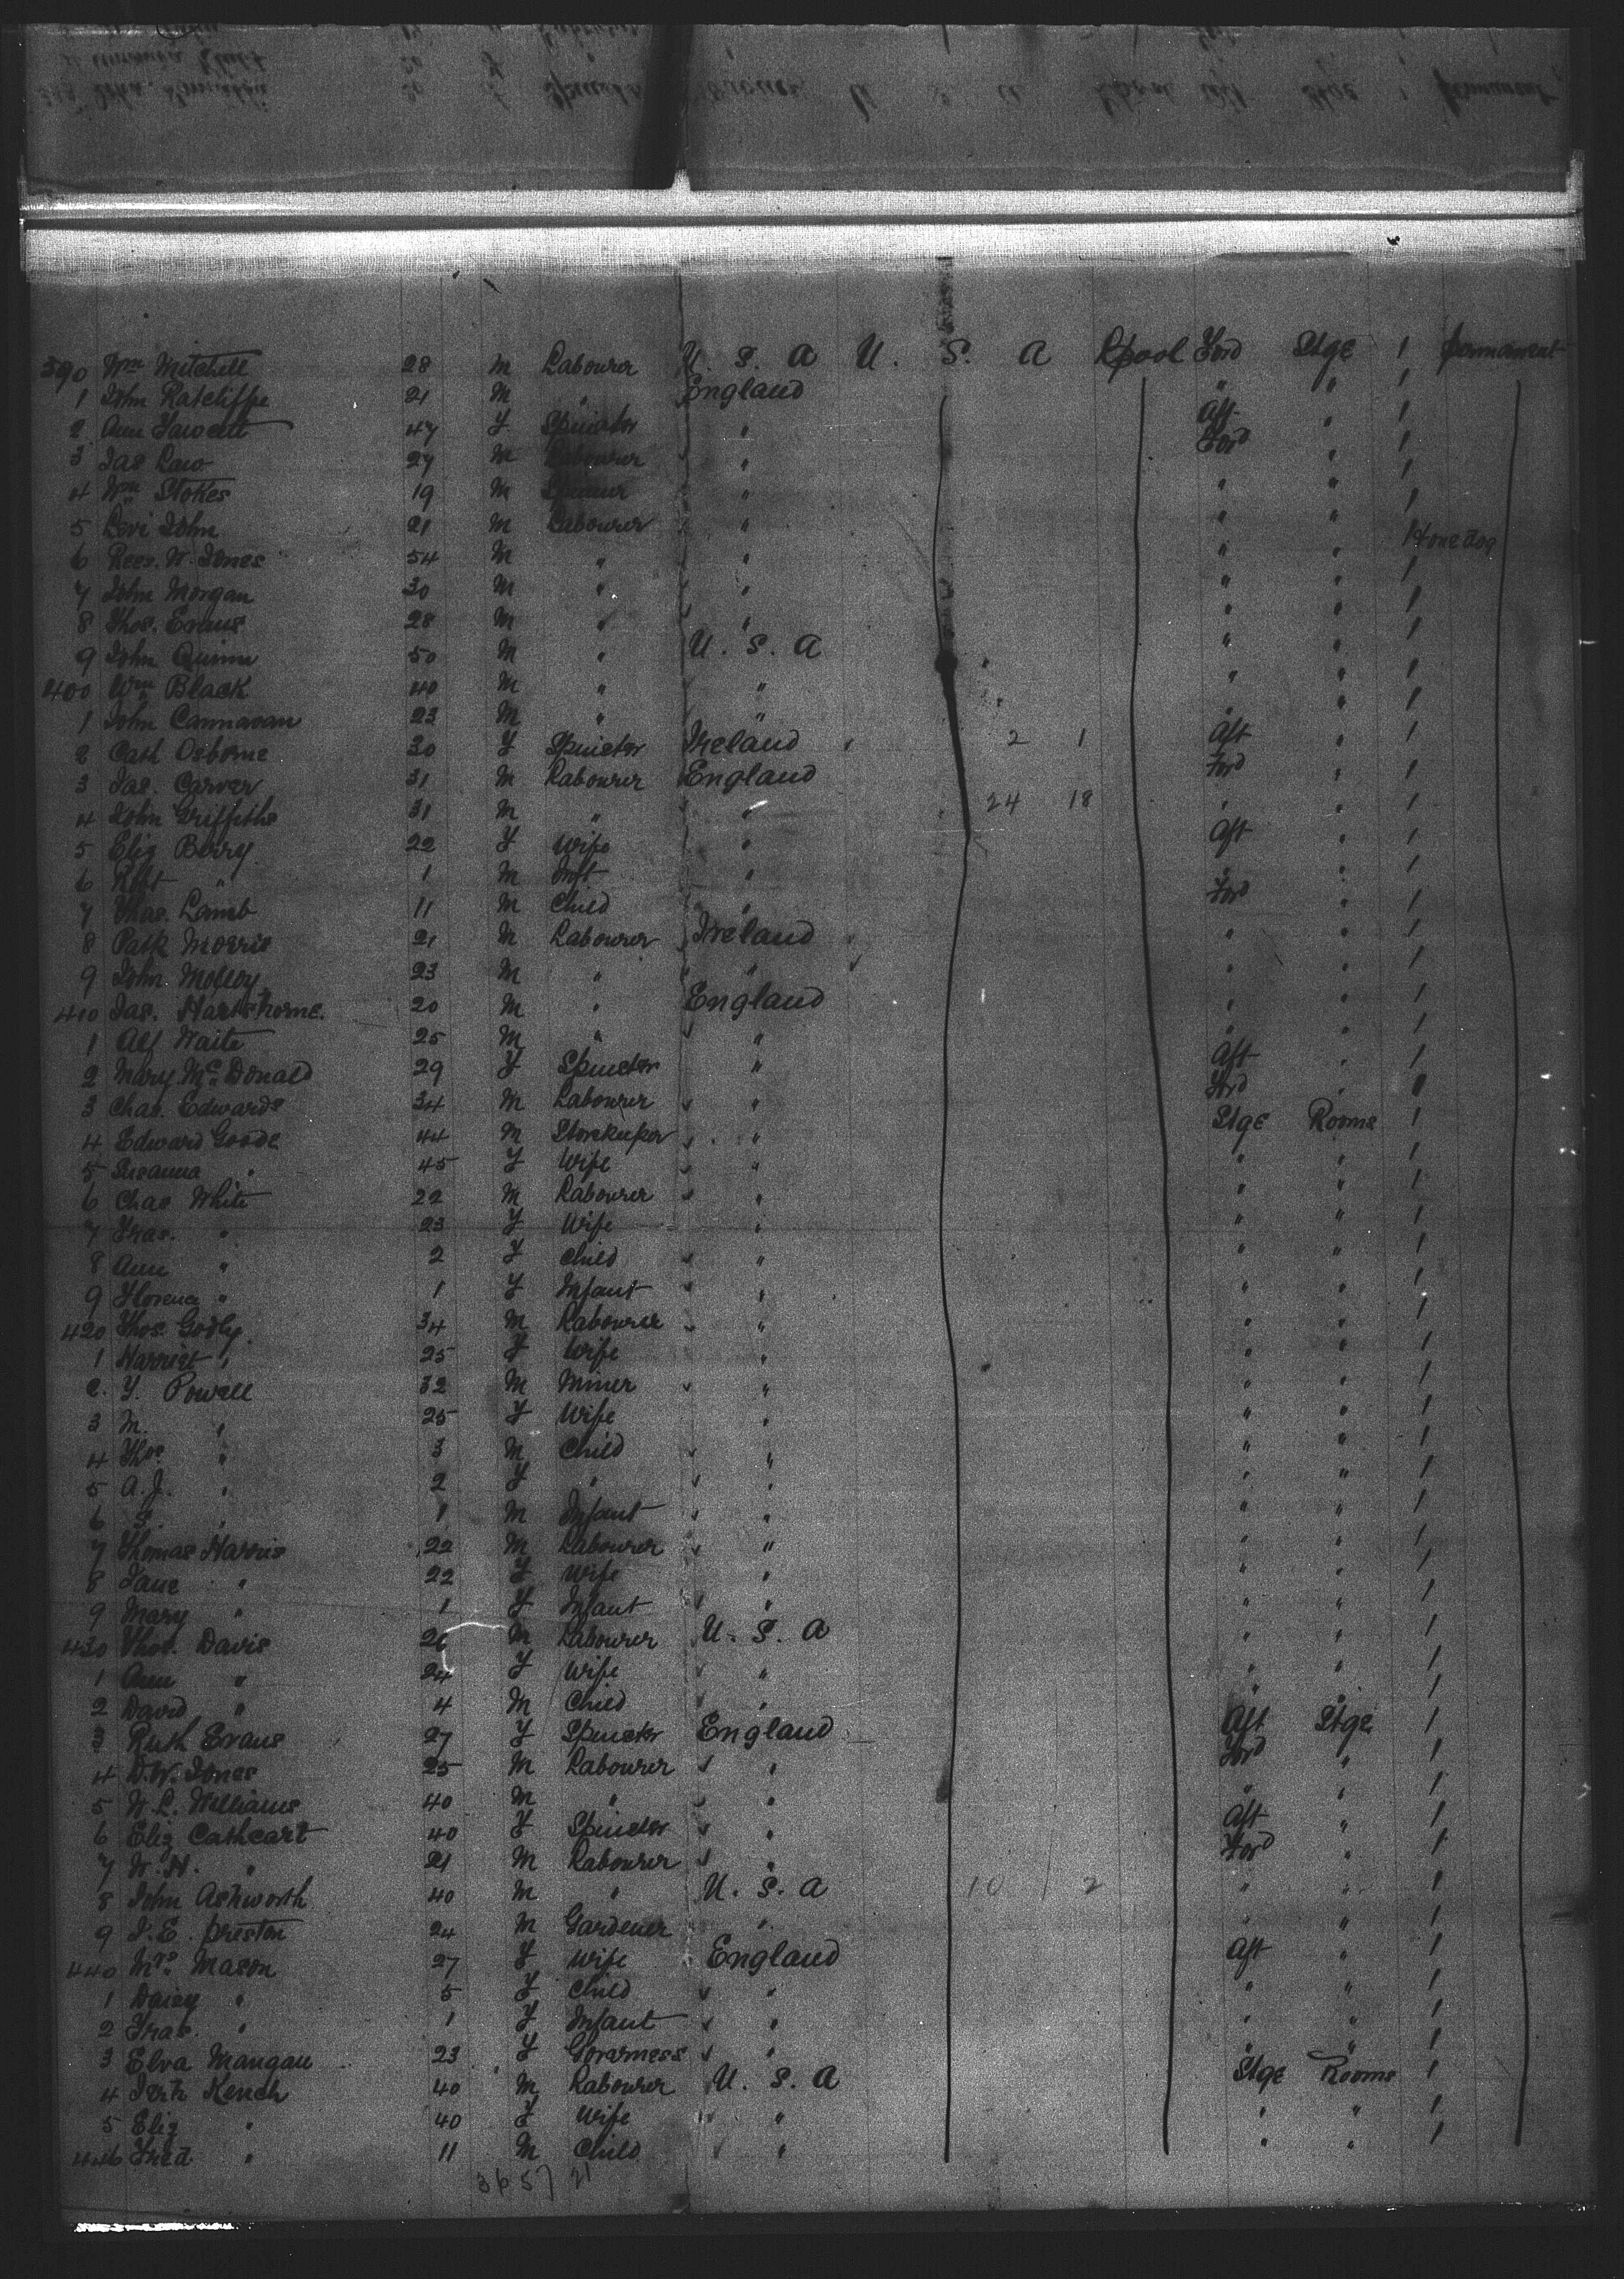 390 Wm Mitchell 28 M Labourer U. S. A U. S. A Lpool Ford Stge 1 permanent
1 John Ratcliffe 21 M " England " " 1
2 Ann Fawcett 47 F Spinster " Aft " 1
3 Jas Law 27 M Labourer " Ford " 1
4 Wm Stokes 19 M " " " 1
5 Levi John 21 M Labourer " " " 1
6 Rees. W. Jones 54 M " " " " 1 + one dog
7 John Morgan 30 M " " " " 1
8 Thos. Evans 28 M " " " " 1
9 John Quinn 50 M " U. S. A " " 1
400 Wm Black 40 M " " " " 1
1 John Cannavan 23 M " " " " 1
2 Cath Osborne 30 F Spinster Ireland 2 1 Aft " 1
3 Jas. Carver 31 M Labourer England Ford " 1
4 John Griffiths 31 M " " 24 18 " " 1
5 Eliz Berry 22 F Wife " Aft " 1
6 Robt " 1 M Inft " " " 1
7 Thos. Lamb 11 M Child " Ford " 1
8 Patk Morris 21 M Labourer Ireland " " 1
9 John Molloy 23 M " " " " 1
410 Jas. Hartshorne. 20 M " England " " 1
1 Alf Waite 25 M " " " " 1
2 Mary McDonald 29 F Spinster " Aft " 1
3 Chas. Edwards 34 M Labourer " Ford " 1
4 Edward Goode 44 M Storekeeper " Stge Rooms 1
5 Susanna " 45 F Wife " " " 1
6 Chas White 22 M Labourer " " " 1
7 Fras. " 23 F Wife " " " 1
8 Ann " 2 F Child " " " 1
9 Florence " 1 F Infant " " " 1
420 Thos. Godly 34 M Labourer " " " 1
1 Harriet " 25 F Wife " " " 1
2. Y. Powell 32 M Miner " " " 1
3 M. " 25 F Wife " " " 1
4 Thos. " 3 M Child " " " 1
5 A. J. " 2 F " " " " 1
6 S. " 1 M Infant " " " 1
7 Thomas Harris 22 M Labourer " " " 1
8 Jane " 22 F Wife " " " 1
9 Mary " 1 F Infant " " " 1
430 Thos. Davis 26 M Labourer U. S. A " " 1
1 Ann " 24 F Wife " " " 1
2 David " 4 M Child " " " 1
3 Ruth Evans 27 F Spinster England Aft Stge 1
4 D. W. Jones 25 M Labourer " Ford " 1
5 W. L. Williams 40 M " " " " 1
6 Eliz Cathcart 40 F Spinster " Aft " 1
7 W. H. " 21 M Labourer " Ford " 1
8 John Ashworth 40 M " U. S. A 10 1 2 " " 1
9 J. E. Preston 24 M Gardener " " " 1
440 Mrs. Mason 27 F Wife England Aft " 1
1 Daisy " 5 F Child " " " 1
2 Fras. " 1 F Infant " " " 1
3 Elva Mangan 23 F Governess " " " 1
4 Kench 40 M Labourer U. S. A Stge Rooms 1
5 Eliz " 40 F Wife " " " 1
446 Fred " 11 M Child " " " 1
3657 21